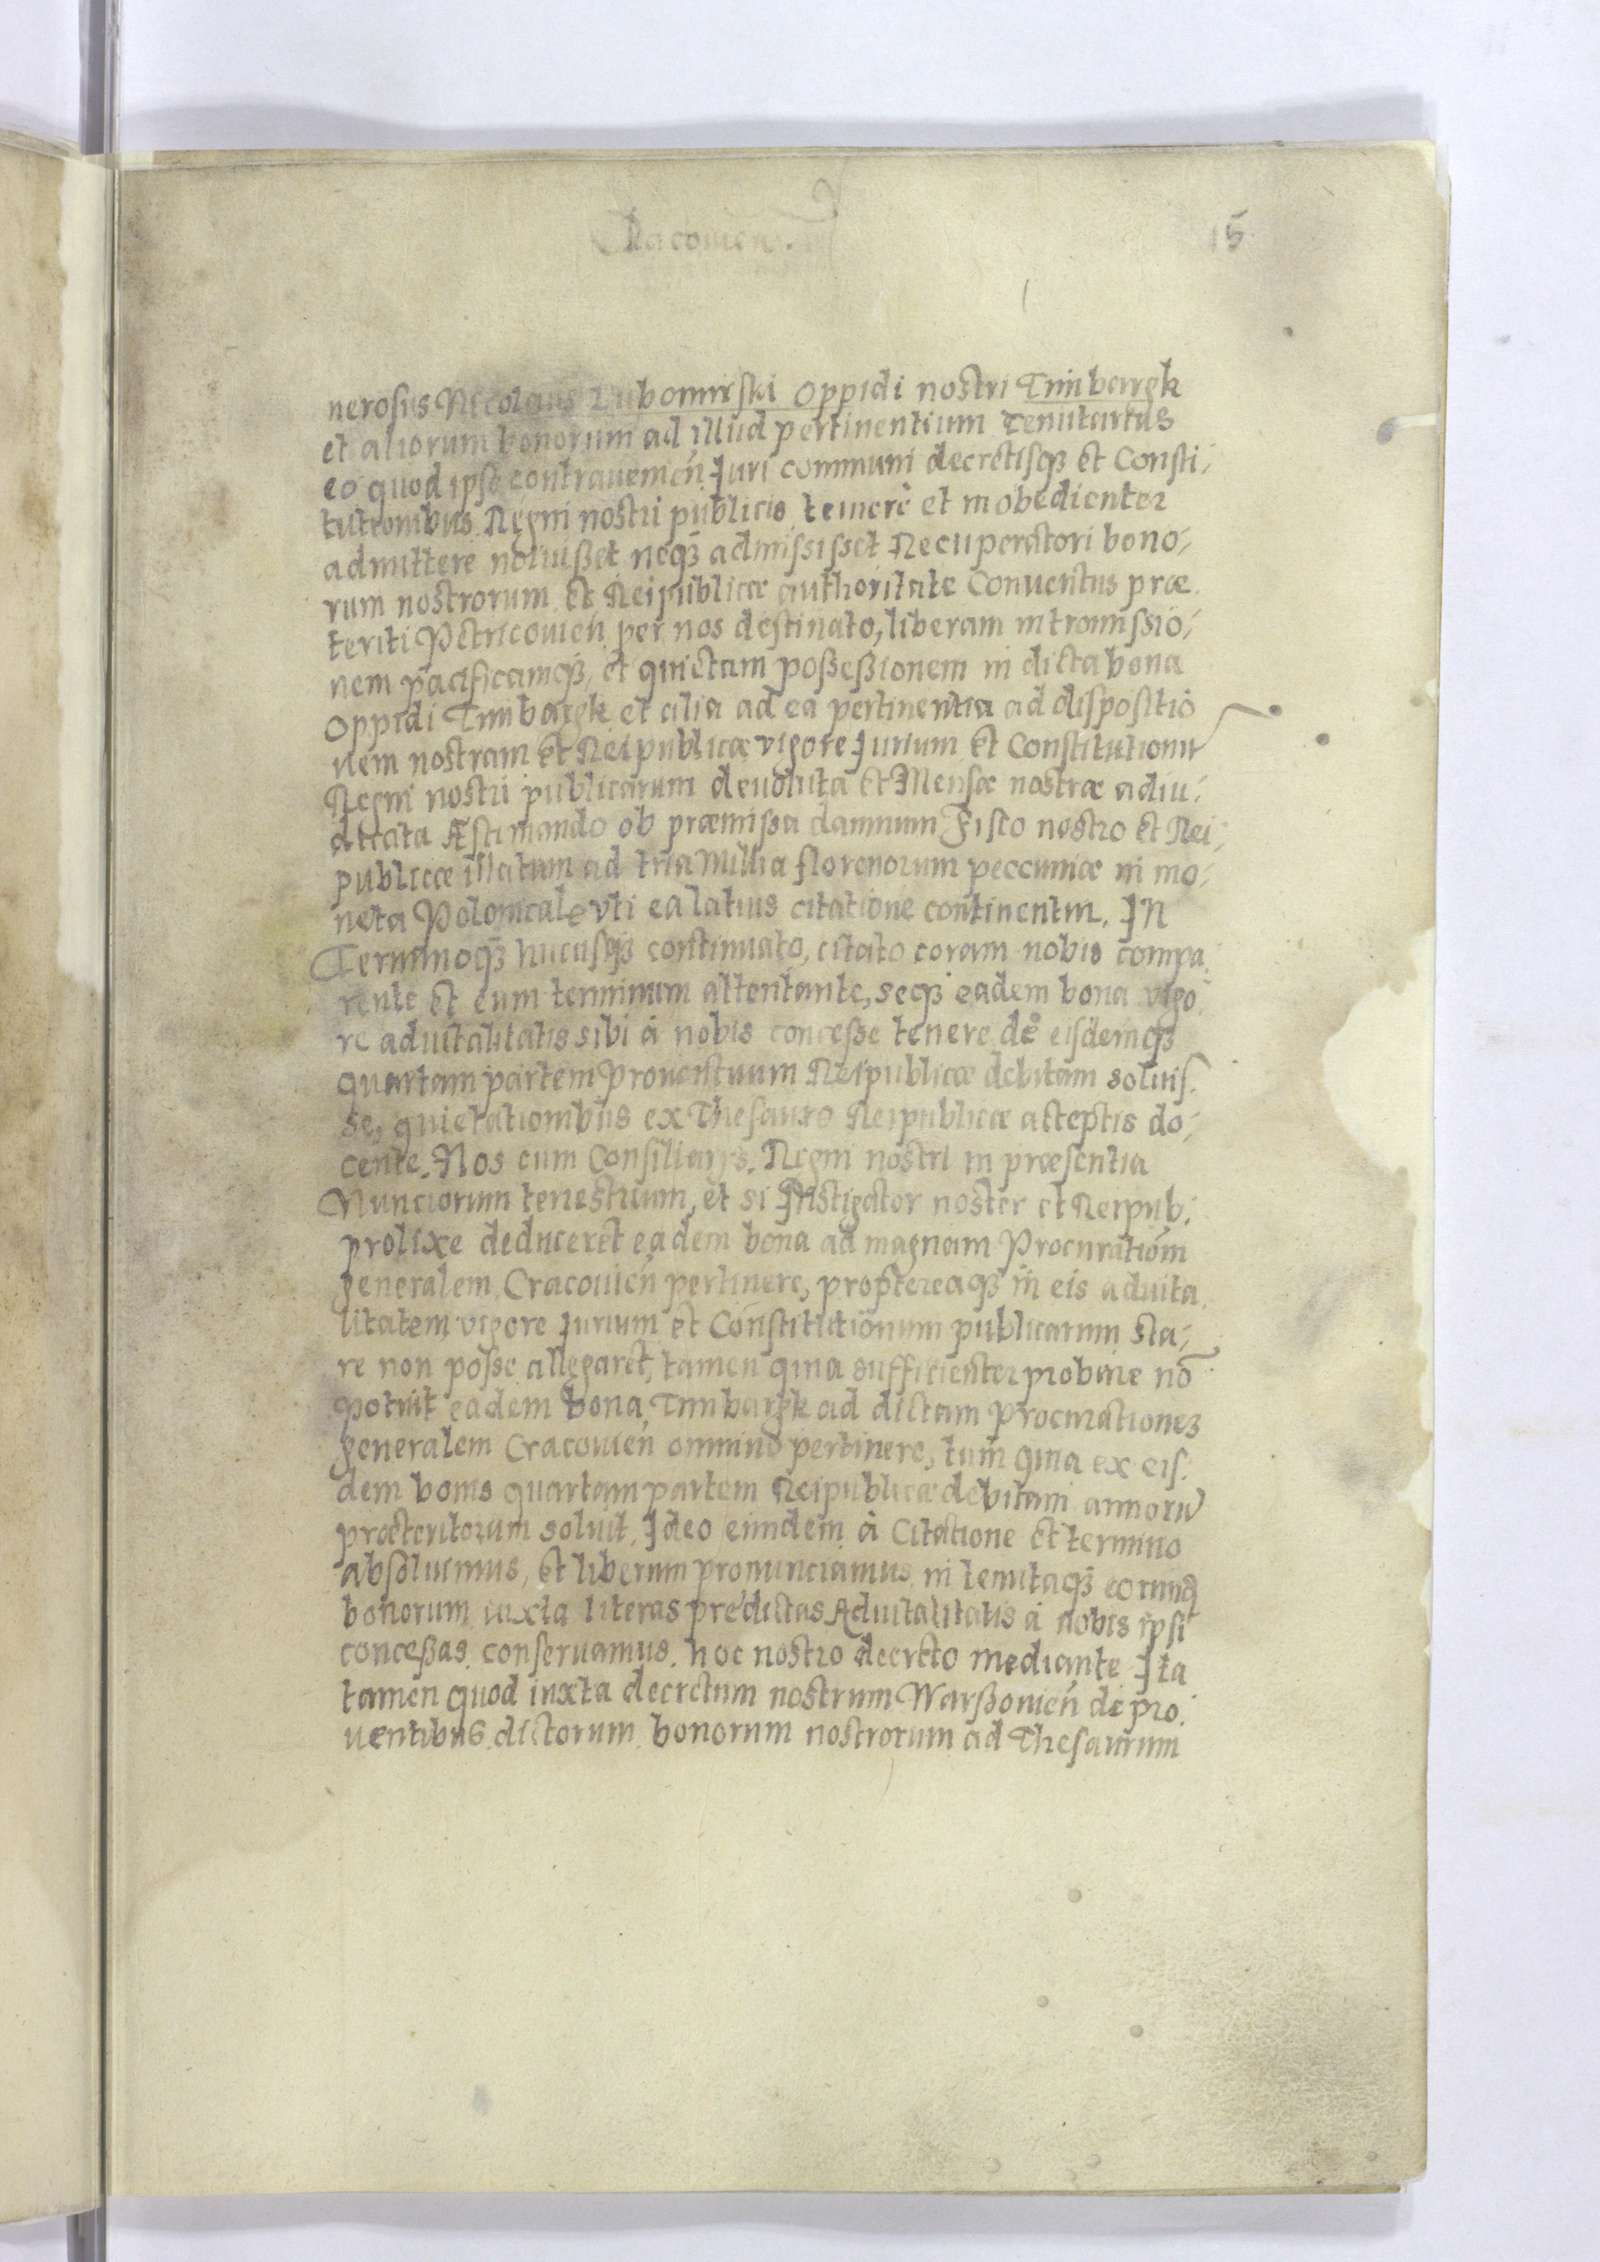 Cracouien.
15
nerosus Nicolaus Lubomirski Oppidi nostri Timbargk
et aliorum bonorum ad illud pertinentium Tenutarius
eo quod ipse contraueniēn Juri communi decretisq₃ et Consti-
tutionibus Regni nostri publicis temerè et inobedienter
admittere noluißet neq₃ admisisset Recuperatori bono-
rum nostrorum et Reipublicæ authoritate Conuentus præ
teriti Petricouien̄ per nos destinato, liberam intromissio-
nem pacificamq₃, et quietam poßeßionem in dicta bona
Oppidi Timbargk et alia ad ea pertinentia ad dispositio
nem nostram et Reipublicæ vigore Jurium et Constitutionū
Regni nostri publicarum deuoluta et Mensæ nostræ adiu-
dicata Æstimando ob præmissa damnum Fisco nostro et Rei-
publicæ illatum ad tria Millia florenorum peccuniæ in mo-
neta Polonicale vti ea latius citatione continentur. In
Terminoq₃ hucusq₃ continuato, citato coram nobis compa
rente et eum terminum attentante, seq₃ eadem bona vigo
re aduitalitatis sibi à nobis concesse tenere de eisdemq₃
quartam partem Prouentuum Reipublicæ debitam soluis
se, quietationibus ex Thesauro Reipublicæ acceptis do-
cente. Nos cum Consiliarijs Regni nostri in præsentia
Nunciorum terrestrium, et si Instigator noster et Reipub.
prolixe deduceret eadem bona ad magnam Procurationem
generalem Cracouien̄ pertinere, proptereaq₃ in eis aduita
litatem vigore Jurium et Constitutionum publicarum sta-
re non posse allegaret, tamen quia sufficienter probare nō
potuit eadem bona Timbargk ad dictam Procurationeꝫ
generalem Cracouien̄ omnino pertinere, tum quia ex eis
dem bonis quartam partem Reipublicæ debitam annorū
præteritorum soluit. Ideo eundem à Citatione et termino
absoluimus, et liberum pronunciamus in tenutaq₃ eorund
bonorum iuxta literas predictas Aduitalitatis à nobis ipsi
conceßas conseruamus hoc nostro decreto mediante Ita
tamen quod iuxta decretum nostrum Warßouien̄ de pro
uentibus dictorum bonorum nostrorum ad Thesaurum